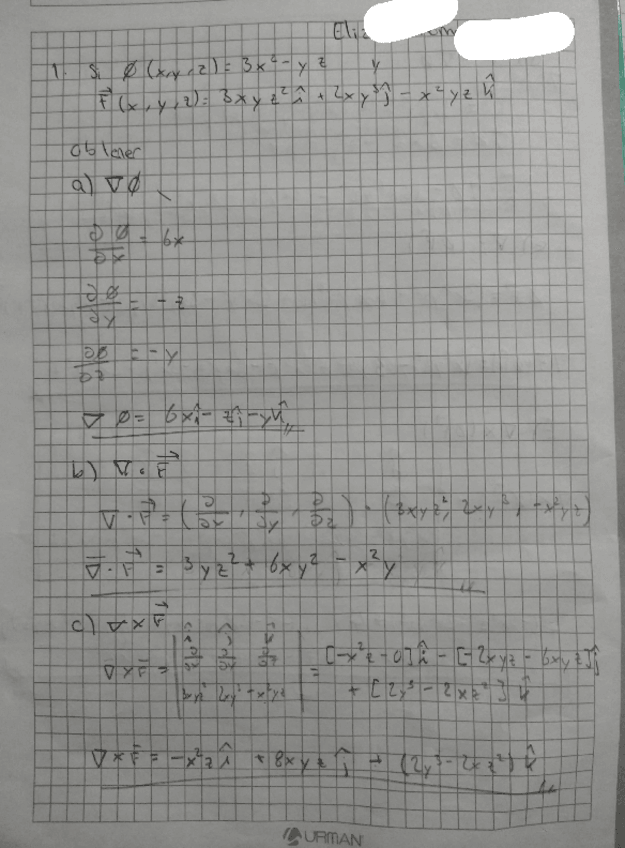 1. Si φ(x,y,z) = 3x² - yz y
F⃗(x,y,z) = 3xyz² î + 2xy³ ĵ - x²yz k̂
obtener
a) ∇φ
∂φ/∂x = 6x
∂φ/∂y = -z
∂φ/∂z = -y
∇φ = 6xî - zĵ - yk̂
b) ∇⃗ · F⃗
∇⃗ · F⃗ = (∂/∂x, ∂/∂y, ∂/∂z) · (3xyz², 2xy³, -x²yz)
∇⃗ · F⃗ = 3yz² + 6xy² - x²y
c) ∇ × F⃗
∇ × F⃗ = | î ĵ k̂ ; ∂/∂x ∂/∂y ∂/∂z ; 2xy³ -x²yz | = [-x²z - 0] î - [-2xyz - 6xyz] ĵ
+ [2y³ - 2xz²] k̂
∇ × F⃗ = -x²z î + 8xyz ĵ + (2y³ - 2xz²) k̂
URMAN